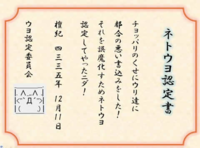 ネトウヨ認定書
チョッパリのくせにウリ達に
都合の悪い書込みをした!
それを誤魔化すためネトウヨ
認定してやったニダ!
檀紀 四三三五年 12月11日
ウヨ認定委員会